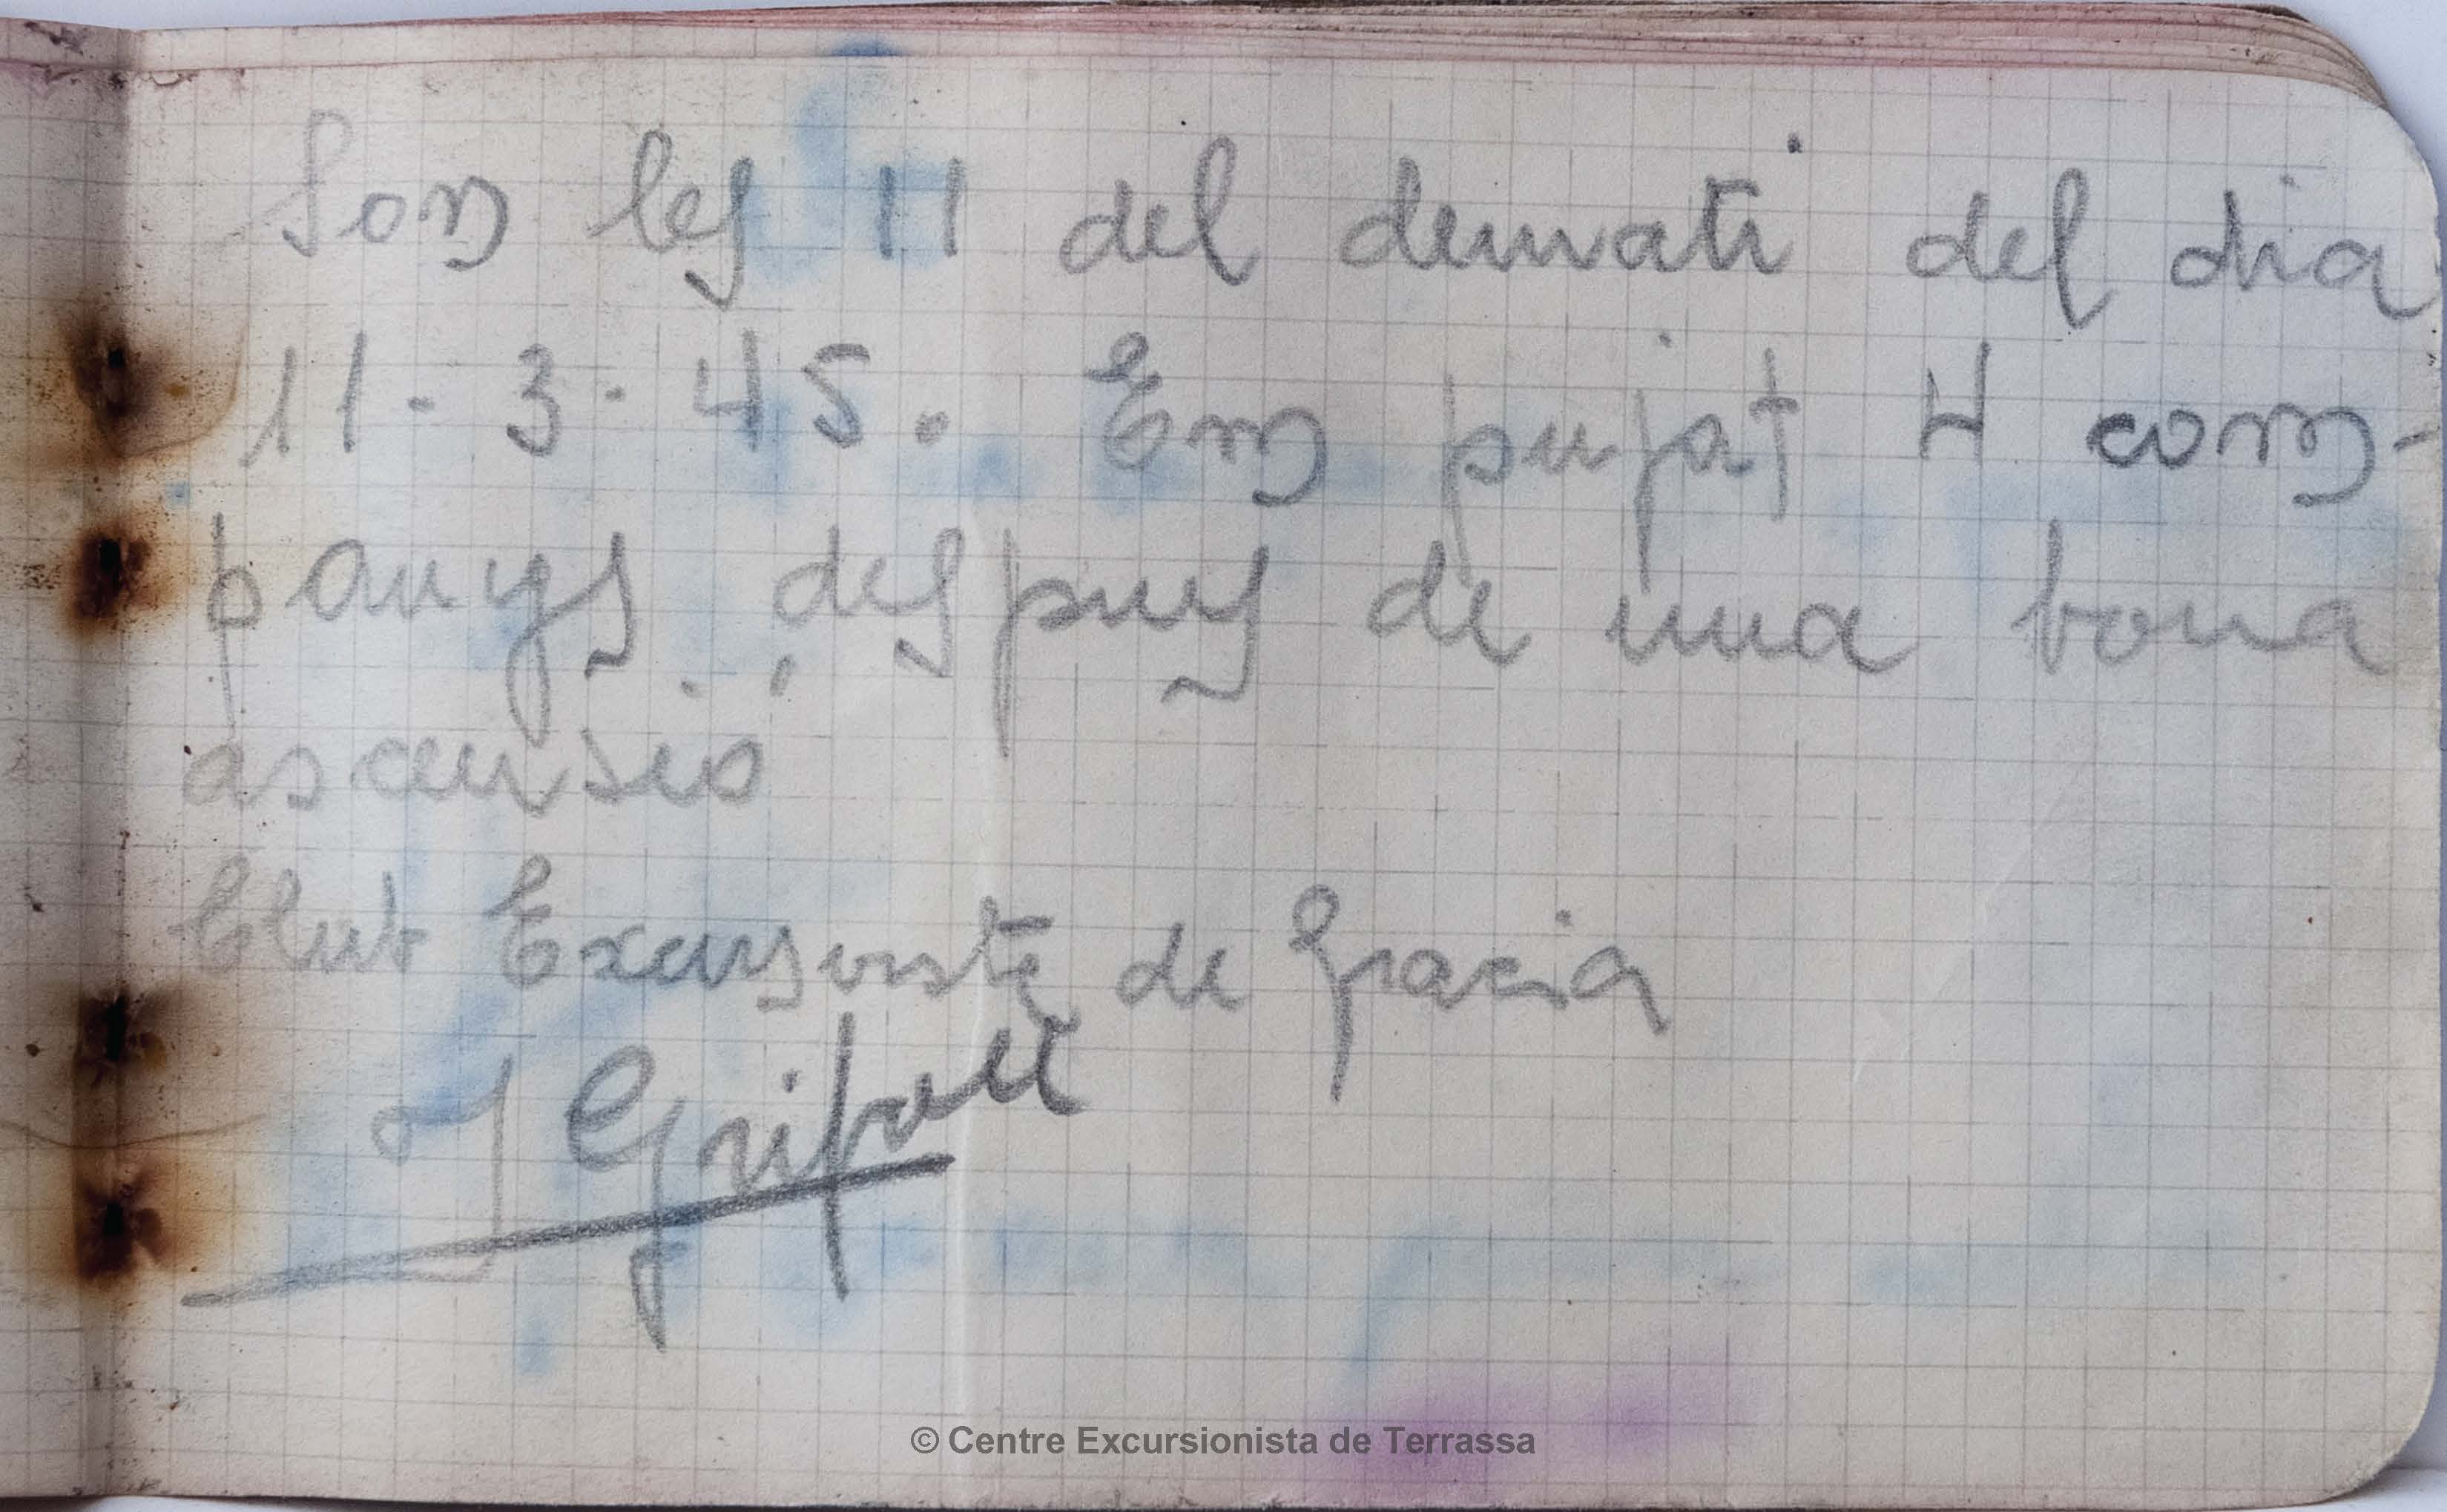 Son les 11 del demati del dia
11 · 3 · 45. Em pujat 4 com-
panys, despues de una bona
ascensió
Club Excursioniste de Gracia
J Gripoll
© Centre Excursionista de Terrassa